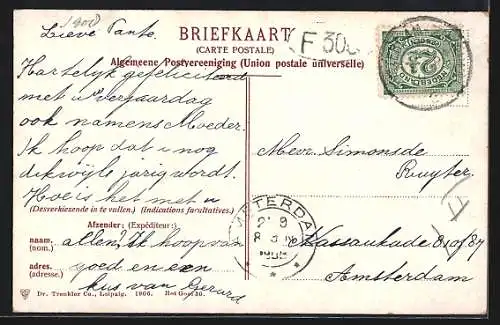 Lieve Tante.
BRIEFKAART
(CARTE POSTALE)
Algemeene Postvereeniging (Union postale universelle)
F 30
NEDERLAND
2½
Hartelyk gefeliciteerd
met uw verjaardag
ook namens Moeder.
Ik hoop dat u nog
dikwyls jarig wordt.
Hoe is het met u
(Desverkiezende in te vullen.) (Indications facultatives.)
Afzender: (Expéditeur:)
naam. (nom.) allen? Ik hoop van
adres. (adresse.) goed en een
kus van Gerard
Mevr. Simons de
Ruyter.
Nassaukade
Amsterdam
AMSTERDAM
Dr. Trenkler Co., Leipzig. 1906.